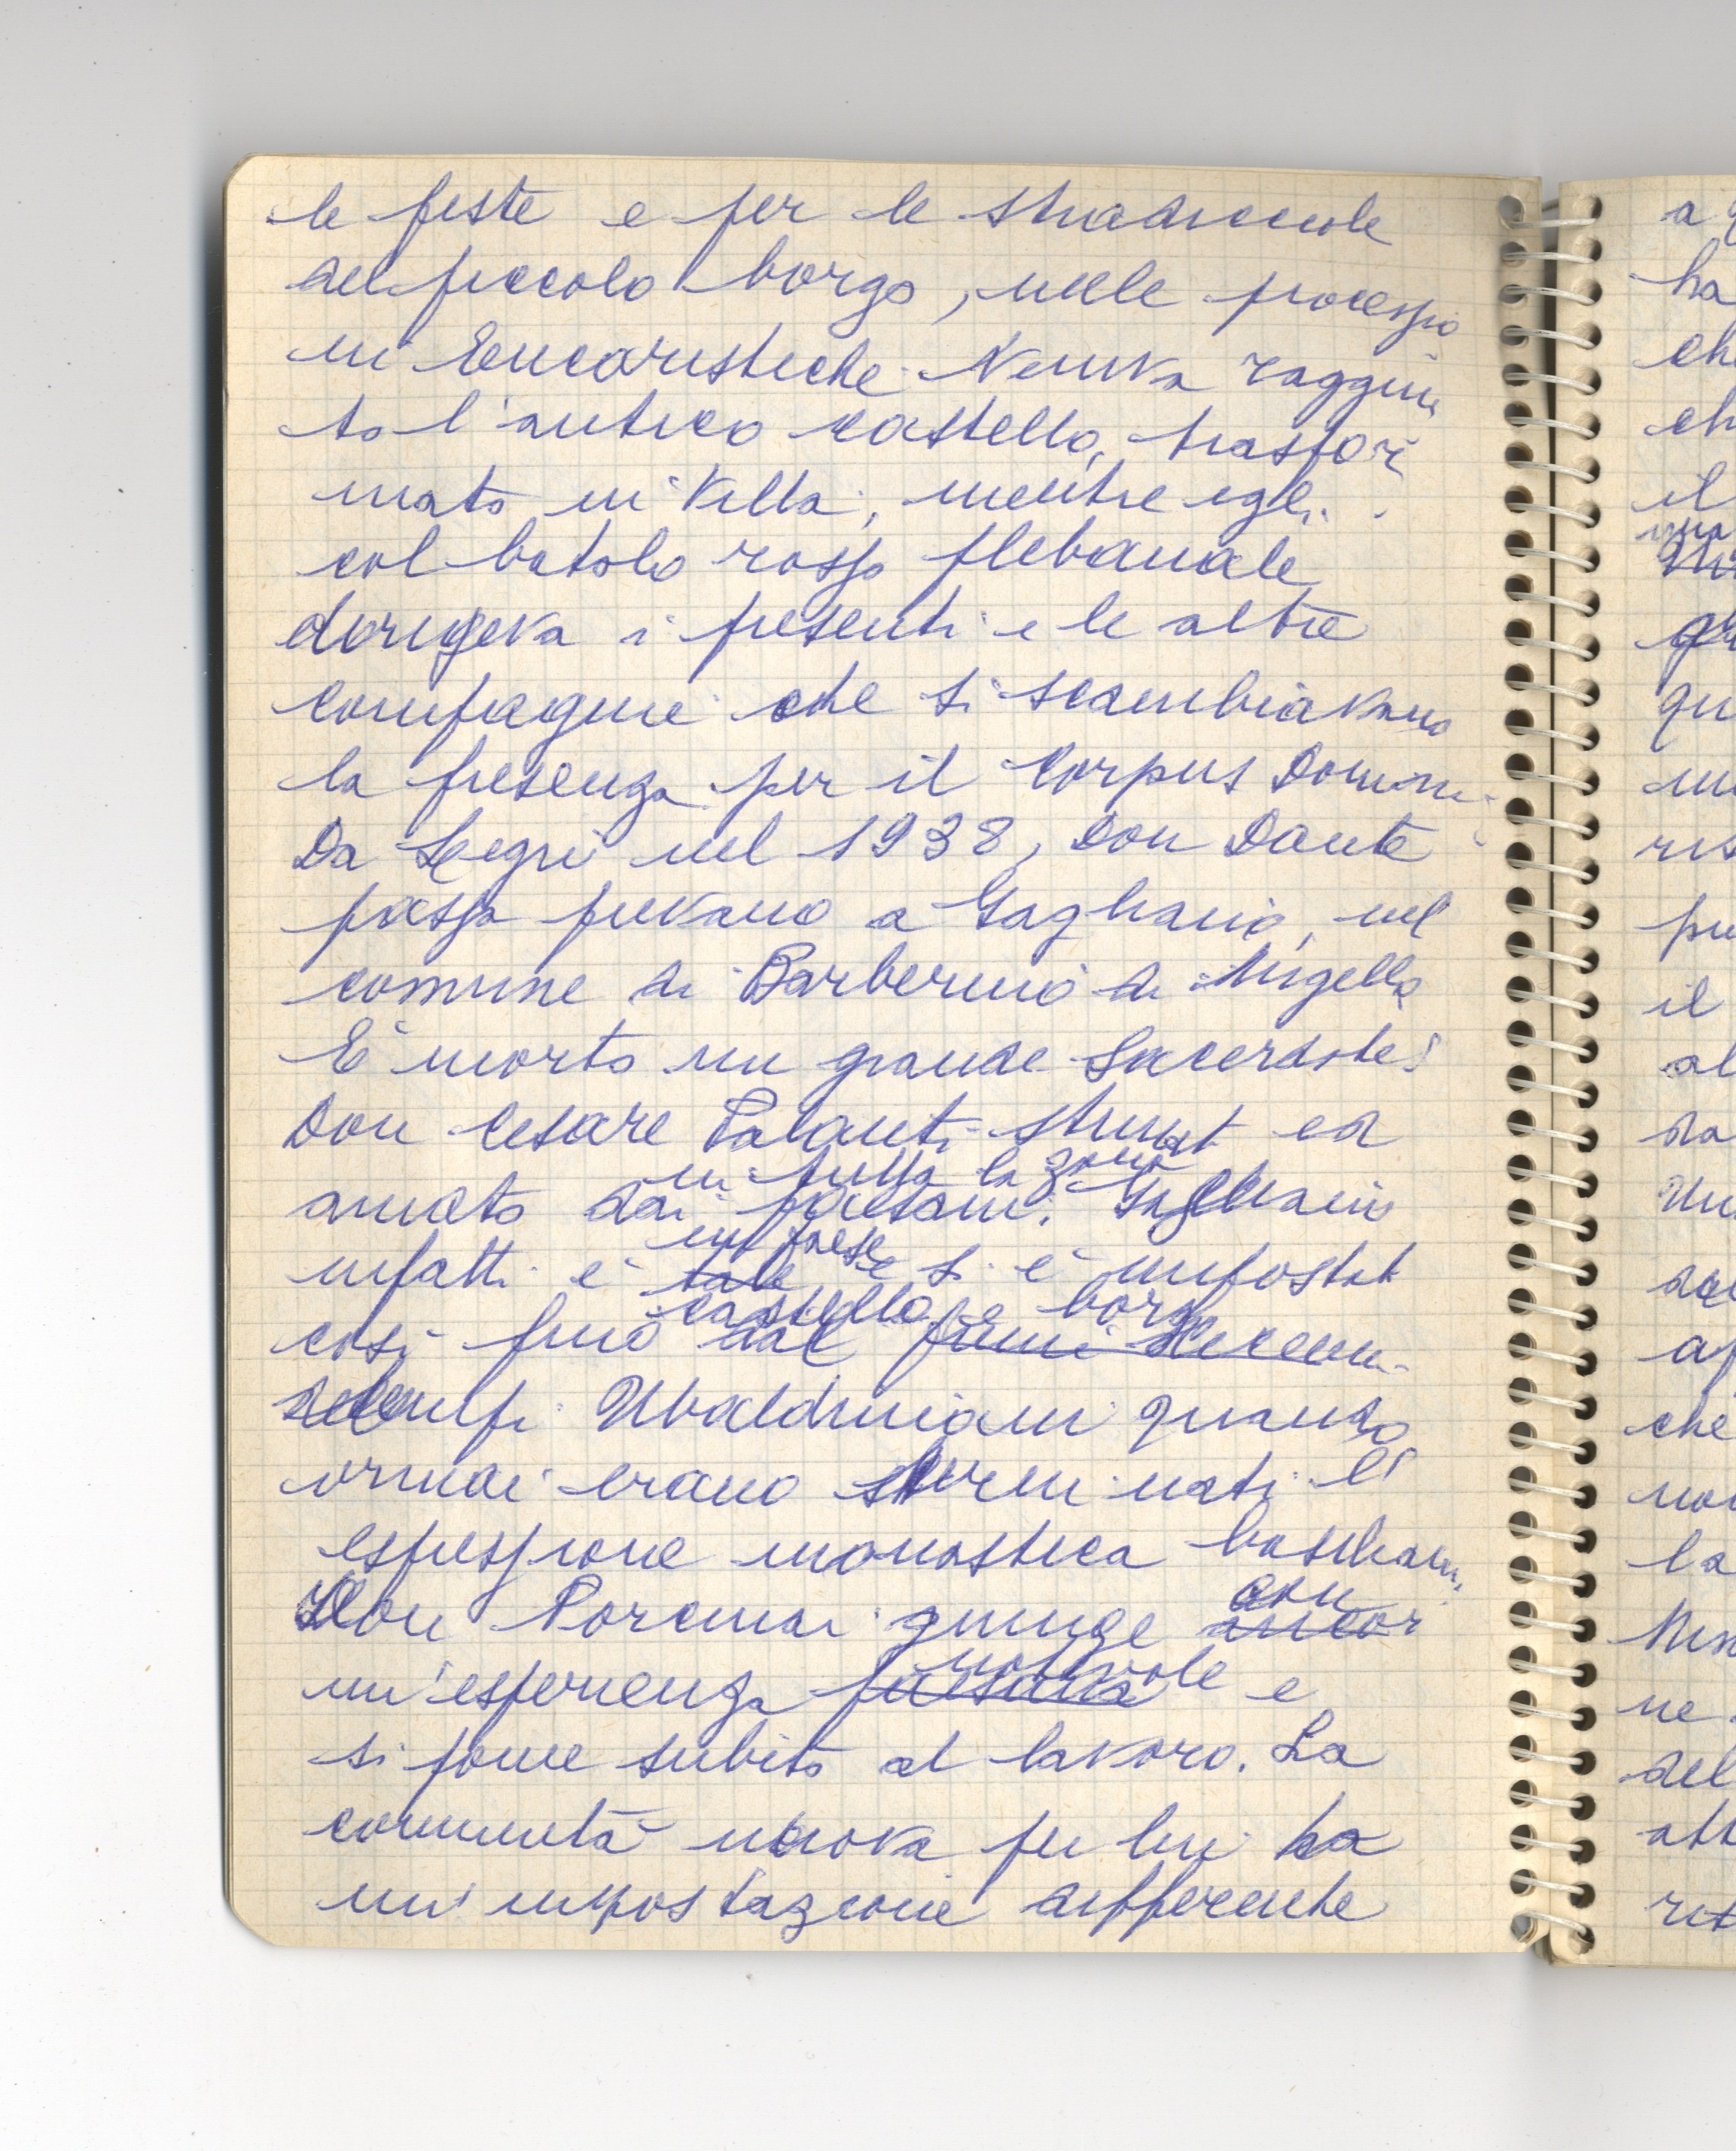 le feste e per le stradicciole
del piccolo borgo, nelle processio
ni Eucaristiche. Veniva raggiun
to l'antico castello, trasfor
mato in Villa, mentre egli
col batolo rosso plebanale
dirigeva i presenti e le altre
compagnie che si scambiavano
la presenza per il Corpus Domini.
Da Legri nel 1938, Don Dante
passa pievano a Gagliano, nel
comune di Barberino di Mugello
E' morto un grande Sacerdote!
Don Cesare Palanti stimat ed
in tutta la zona
amato dai paesani. Gagliano
un paese
infatti è tale e si è impostat
castello e borgo
così fino dal primi
Ubaldiniani quando
ormai erano sterminati. E'
espressione monastica
Don Porcinai giunge ancor
con
un'esperienza paesana e
notevole
si pone subito al lavoro. La
comunità nuova per lui ha
un'impostazione differente
a
ha
il
qu
pu
il
al
che
la
ne
del